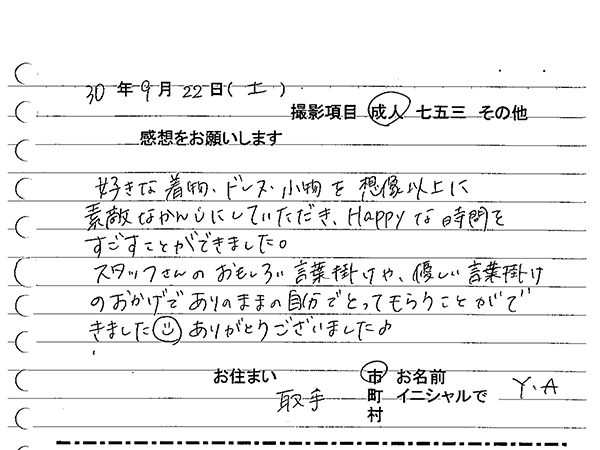 30年9月22日(土)
撮影項目 成人 七五三 その他
感想をお願いします
好きな着物、ドレス、小物を想像以上に
素敵なかんじにしていただき、Happyな時間を
すごすことができました。
スタッフさんのおもしろい言葉掛けや、優しい言葉掛け
のおかげでありのままの自分でとってもらうことがで
きました☺ ありがとうございました♪
お住まい 取手 市 お名前
町 イニシャルで Y.A
村